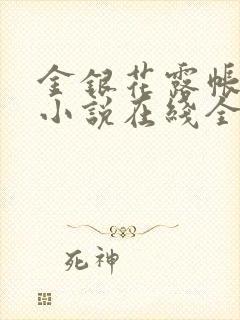 金银花露帐
小说在线全
死神